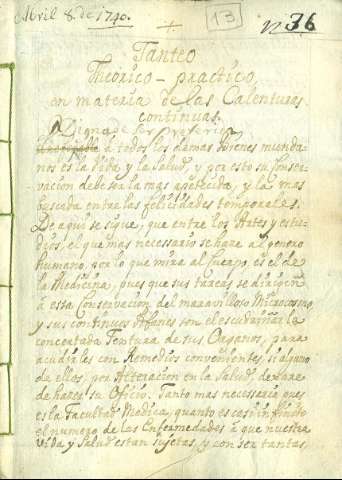 Abril 8. de 1740.
13
nº 36
Tanteo
Theorico-practico,
en materia de las Calenturas
continuas.
Digna de ser preferida
à todos los demas bienes munda-
nos es la Vida, y la Salud, y por esto su Conser-
vacion debe ser la mas apetecida, y la mas
buscada entre las felicidades temporales.
De aqui se sigue, que entre los Artes y estu-
dios, el que mas necessario se hace al genero
humano, por lo que mira al Cuerpo, es el de
la Medicina, pues que sus tareas se dirigen
à esta Conservacion del maravilloso Microcosmo,
y sus continuos Afanes son el escudriñar la
concertada Textura de sus Organos, para
acudirles con Remedios convenientes, si alguno
de ellos, por Alteracion en la Salud, dexare
de hacer su Oficio. Tanto mas necessaria pues
es la Facultad Medica, quanto es casi infinito
el numero de las Enfermedades à que nuestra
Vida y Salud estan sujetas, y con ser tantas,